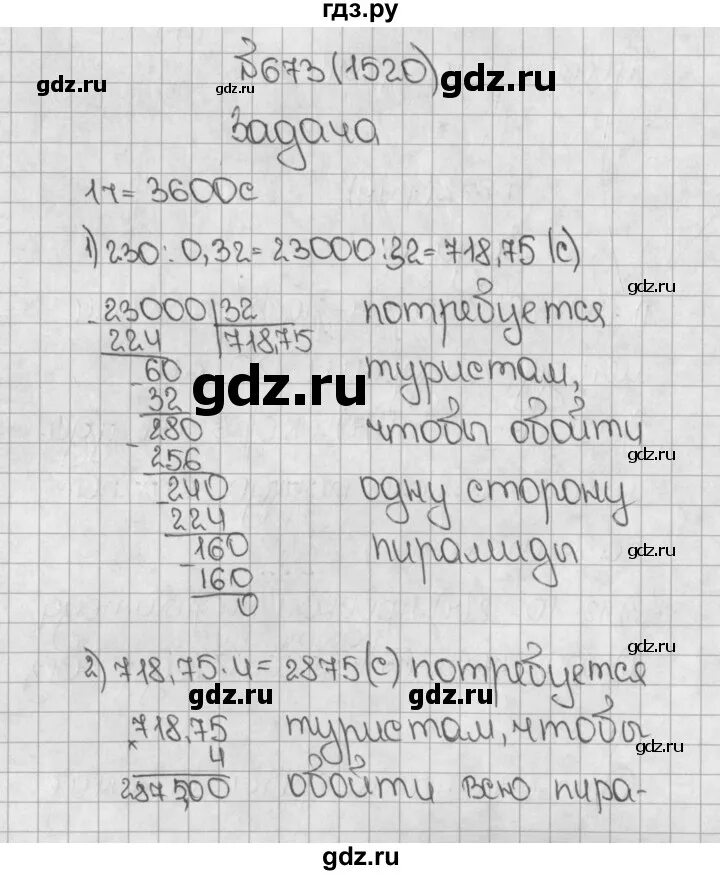 гдз.ру
№673(1520)
gdz.ru
gdz.ru
Задача
1ч = 3600с
1) 230 : 0,32 = 23000 : 32 = 718,75 (с)
gdz.ru
23000 | 32
потребуется
224
718,75
60
туристам,
gdz.ru
32
280
чтобы обойти
256
gdz.ru
240
одну сторону
224
160
пирамиды
gdz.ru
160
0
gdz.ru
2) 718,75 · 4 = 2875 (с) потребуется
gdz.ru
gdz.ru
718,75
туристам, чтобы
× 4
gdz.ru
2875,00
обойти всю пира-
gdz.ru